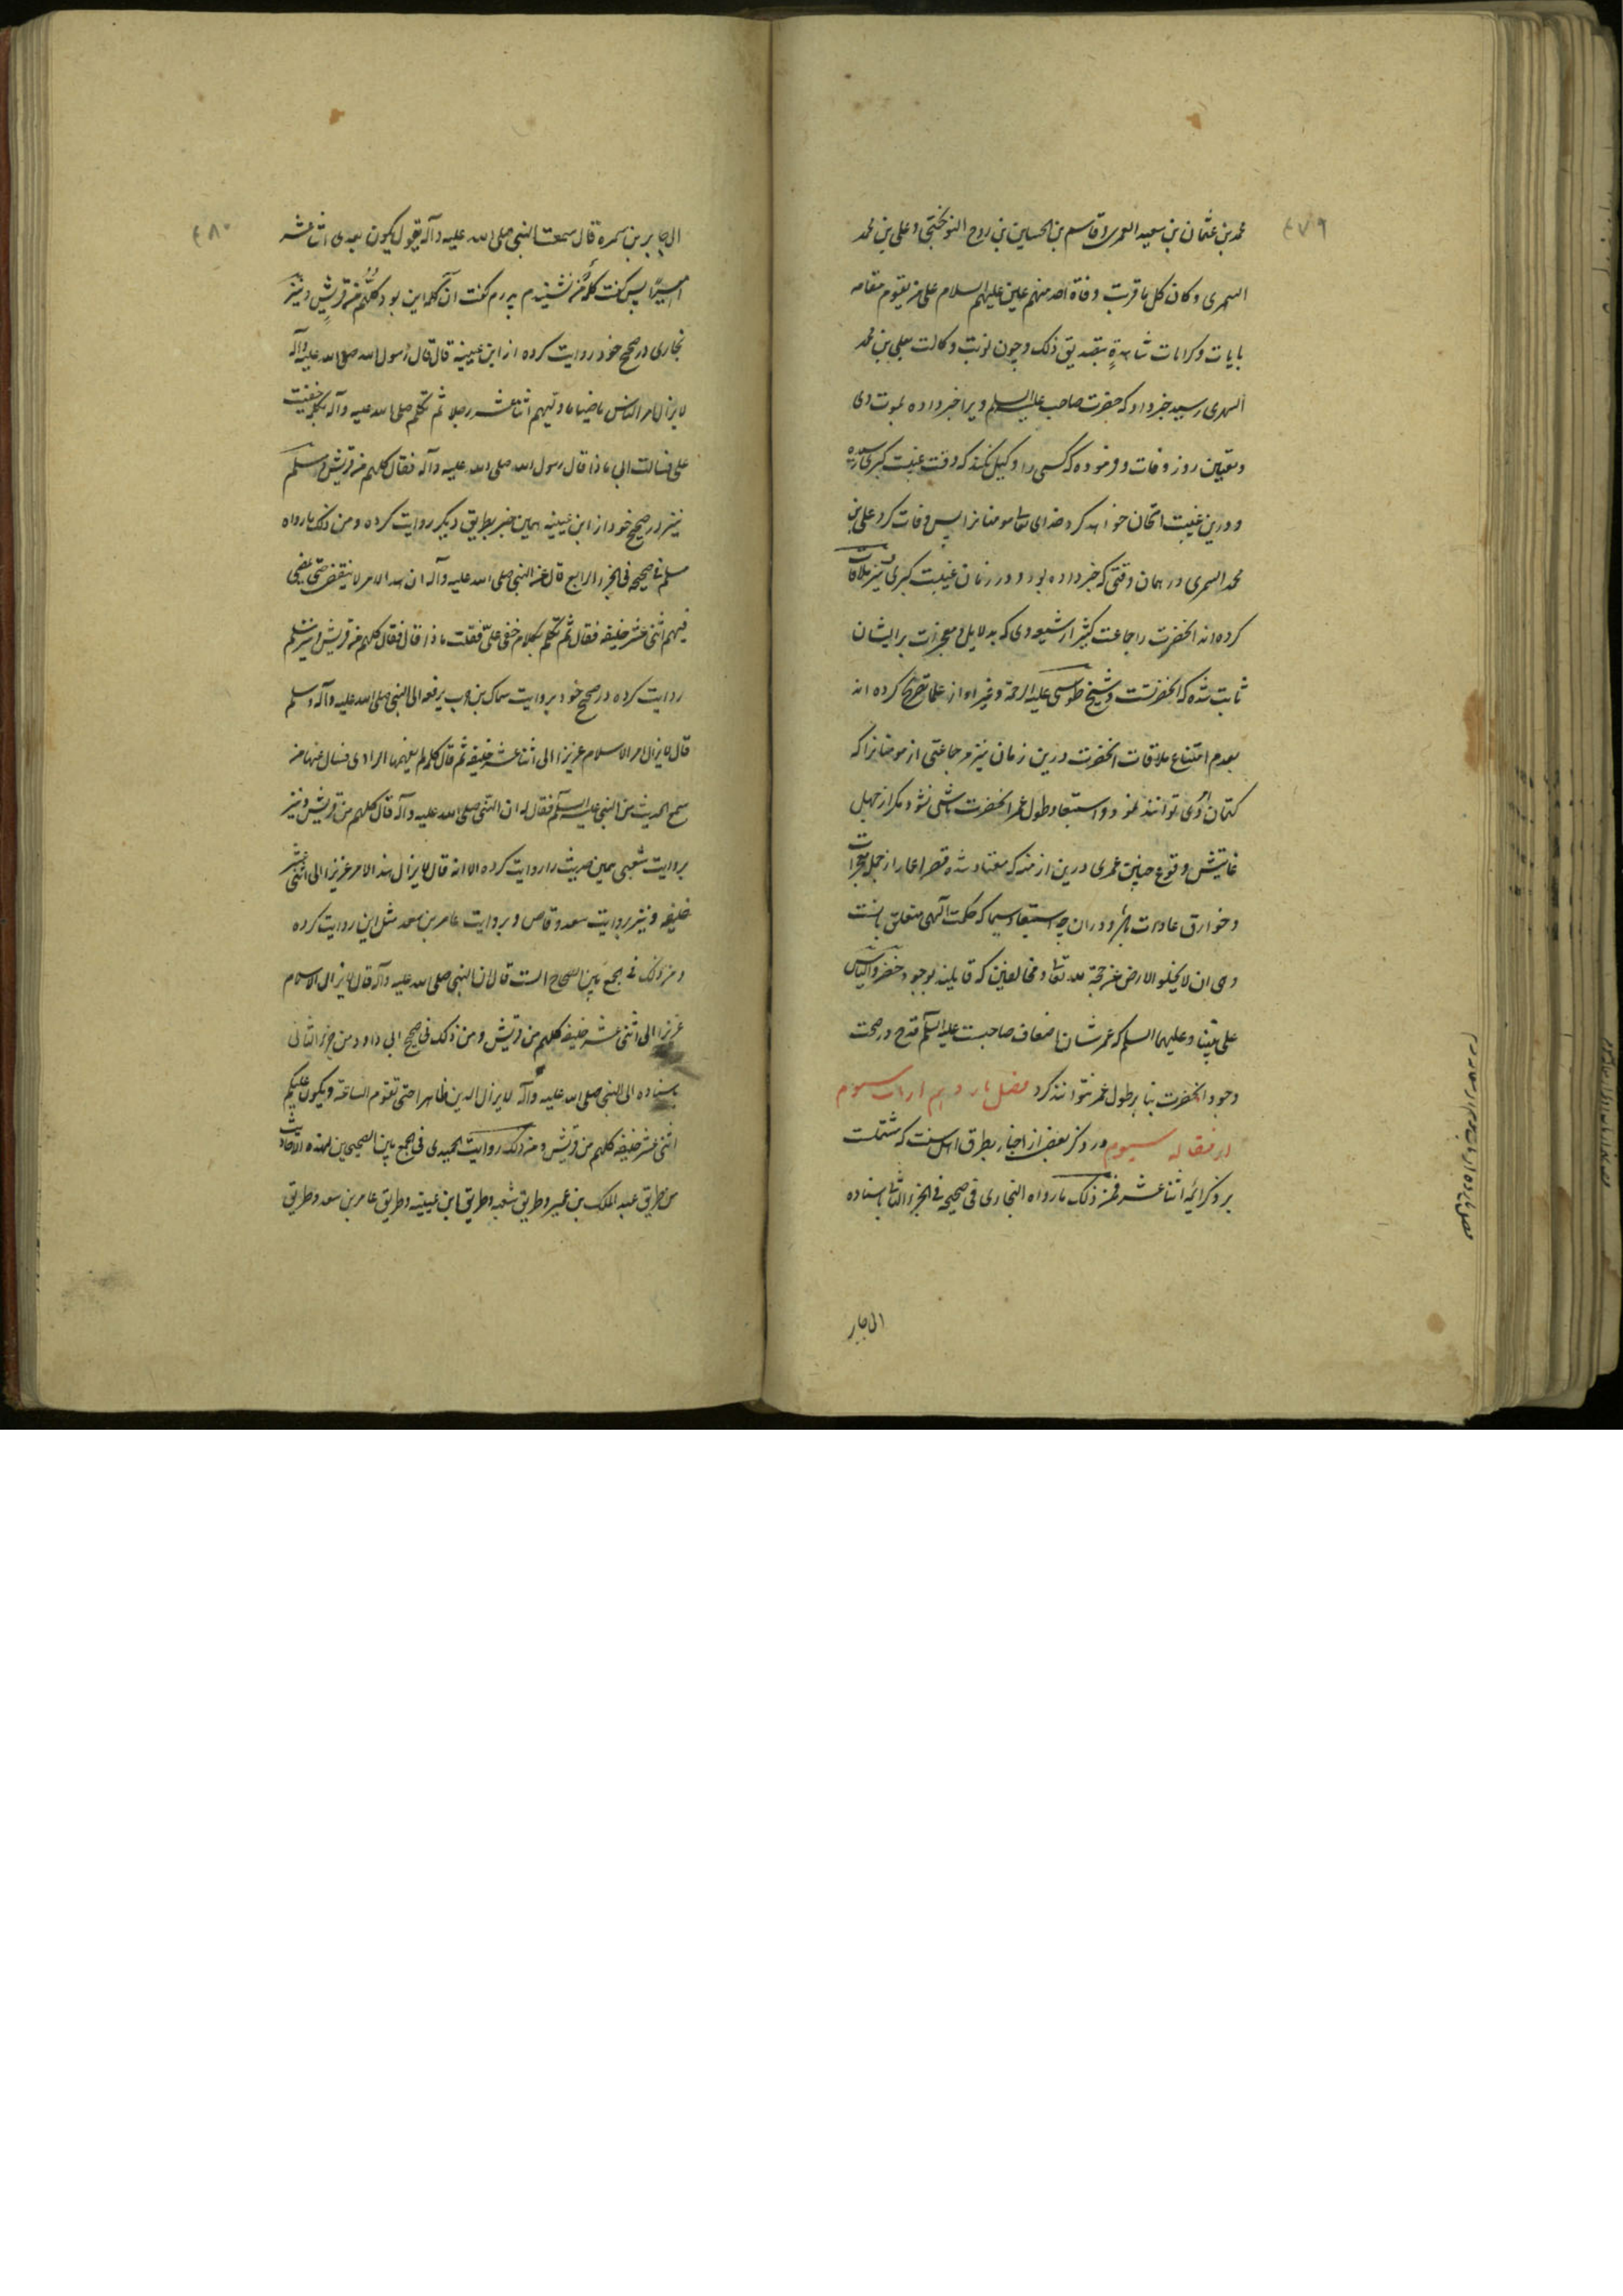 ۴۷۹
محمد بن عثمان بن سعید العمری و قاسم بن الحسین بن روح النوبختی و علی بن محمد
السمری و کان کل ما قربت وفاة احد منهم عین علیهم السلام علی من یقوم مقامه
بایات و کرامات شاهدةٍ بتصدیق ذلک و چون نوبت وکالت بعلی بن محمد
السمری رسید خبر داد که حضرت صاحب علیه السلم ویرا خبر داده بموت وی
و تعیین روز وفات و فرموده که کسی را وکیل نکند که وقت غیبت کبری رسیده
و درین غیبت امتحان خواهد کرد خدای تعالی مومنانرا پس وفات کرد علی بن
محمد السمری در همان وقتی که خبر داده بود و در زمان غیبت کبری نیز ملاقات
کرده اند انحضرت را جماعت کثیر از شیعه وی که بدلایل و معجزات بر ایشان
ثابت شده که انحضرتست و شیخ طوسی علیه الرحمة و غیر او از علما تصریح کرده اند
بعدم امتناع ملاقات انحضرت درین زمان نیز مر جماعتی از مومنانرا که
کتمان امر وی توانند نمود و استبعاد طول عمر انحضرت ناشی نشود مکر از جهل
غایتش وقوع چنین عمری درین ازمنه که معتاد شده قصر اعمار از جمله معجزات
و خوارق عادات باشد و در ان چه استبعاد سیما که حکمت الهی متعلق بانست
وهی ان لا یخلو الارض عن حجة لله تعالی و مخالفین که قایلند بوجود خضر و الیاس
علی نبینا و علیهما السلم که عمرشان اضعاف صاحبست علیه السلم قدح در صحت
وجود انحضرت بنا بر طول عمر نتوانند کرد فصل یازدهم از باب سیوم
از مقاله سیوم در ذکر بعض از اخبار بطرق اهل سنت که مشتملست
بر ذکر ائمه اثنا عشر فمن ذلک ما رواه البخاری فی صحیحه فی الجزء الثامن باسناده
الی جابر
۴۸۰
الی جابر بن سمره قال سمعت النبی صلی الله علیه وآله یقول یکون بعدی اثنا عشر
امیرًا پس کفت کلمه نشنیدم پدرم کفت آن کلمه این بود کلهم من قریشٍ و نیز
بخاری در صحیح خود روایت کرده از ابن عیینه قال قال رسول الله صلی الله علیه وآله
لا یزال امر الناس ماضیا ما ولیهم اثنا عشر رجلا ثم تکلم صلی الله علیه وآله بکلمة خفیت
علی فسالت ابی ماذا قال رسول الله صلی الله علیه وآله فقال کلهم من قریش و مسلم
نیز در صحیح خود از ابن عیینه همین خبر بطریق دیکر روایت کرده و من ذلک ما رواه
مسلم فی صحیحه فی الجزء الرابع قال عن النبی صلی الله علیه وآله ان هذا الامر لا ینقضی حتی یمضی
فیهم اثنی عشر خلیفه فقال ثم تکلم بکلام خفی علیّ فقلت ماذا قال فقال کلهم من قریش و نیز مسلم
روایت کرده در صحیح خود بروایت سماک بن حرب یرفعه الی النبی صلی الله علیه وآله وسلم
قال لا یزال امر الاسلام عزیزا الی اثنا عشر خلیفه ثم قال کلمة لم یفهمها الراوی فسال عنها من
سمع الحدیث من النبی علیه السلم فقال له ان النبی صلی الله علیه وآله قال کلهم من قریش و نیز
بروایت شعبی همین حدیث را روایت کرده الا انه قال لا یزال هذا الامر عزیزا الی اثنی عشر
خلیفه و نیز بروایت سعد وقاص و بروایت عامر بن سعد مثل این روایت کرده
و من ذلک فی جمع بین الصحاح الست قال ان النبی صلی الله علیه وآله قال لا یزال الاسلام
عزیزا الی اثنی عشر خلیفه کلهم من قریش و من ذلک فی صحیح ابی داود من جزء الثانی
باسناده الی النبی صلی الله علیه وآله لا یزال الدین ظاهرا حتی تقوم الساعة و یکون علیکم
اثنی عشر خلیفه کلهم من قریش و من ذلک روایت الحمیدی فی الجمع بین الصحیحین لهذه الاحادیث
من طریق عبد الملک بن عمیر و طریق شعبه و طریق ابن عیینه و طریق عامر بن سعد و طریق